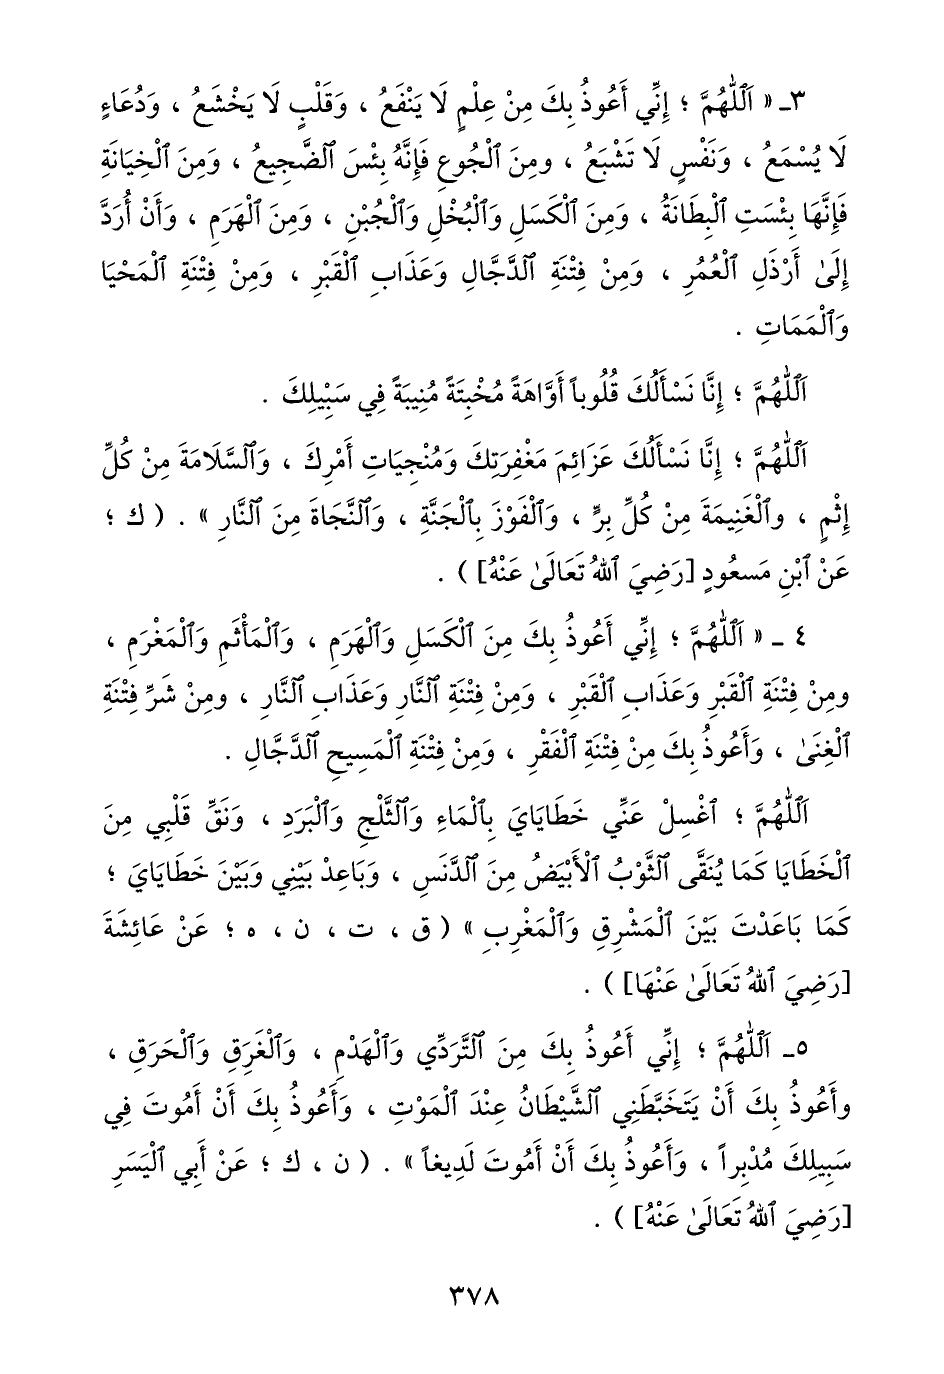 ٣ـ « ٱَللّٰهُمَّ ؛ إِنِّي أَعُوذُ بِكَ مِنْ عِلْمٍ لَا يَنْفَعُ ، وَقَلْبٍ لَا يَخْشَعُ ، وَدُعَاءٍ
لَا يُسْمَعُ ، وَنَفْسٍ لَا تَشْبَعُ ، ومِنَ ٱلْجُوعِ فَإِنَّهُ بِئْسَ ٱلضَّجِيعُ ، وَمِنَ ٱلْخِيَانَةِ
فَإِنَّهَا بِئْسَتِ ٱلْبِطَانَةُ ، وَمِنَ ٱلْكَسَلِ وَٱلْبُخْلِ وَٱلْجُبْنِ ، وَمِنَ ٱلْهَرَمِ ، وَأَنْ أُرَدَّ
إِلَىٰ أَرْذَلِ ٱلْعُمُرِ ، وَمِنْ فِتْنَةِ ٱلدَّجَّالِ وَعَذَابِ ٱلْقَبْرِ ، وَمِنْ فِتْنَةِ ٱلْمَحْيَا
وَٱلْمَمَاتِ .
ٱَللّٰهُمَّ ؛ إِنَّا نَسْأَلُكَ قُلُوباً أَوَّاهَةً مُخْبِتَةً مُنِيبَةً فِي سَبِيْلِكَ .
ٱَللّٰهُمَّ ؛ إِنَّا نَسْأَلُكَ عَزَائِمَ مَغْفِرَتِكَ وَمُنْجِيَاتِ أَمْرِكَ ، وَٱلسَّلَامَةَ مِنْ كُلِّ
إِثْمٍ ، وٱلْغَنِيمَةَ مِنْ كُلِّ بِرٍّ ، وَٱلْفَوْزَ بِٱلْجَنَّةِ ، وَٱلنَّجَاةَ مِنَ ٱلنَّارِ » . ( ك ؛
عَنْ ٱبْنِ مَسعُودٍ [رَضِيَ ٱللهُ تَعَالَىٰ عَنْهُ] ) .
٤ ـ « ٱَللّٰهُمَّ ؛ إِنِّي أَعُوذُ بِكَ مِنَ ٱلْكَسَلِ وَٱلْهَرَمِ ، وَٱلْمَأْثَمِ وَٱلْمَغْرَمِ ،
ومِنْ فِتْنَةِ ٱلْقَبْرِ وَعَذَابِ ٱلْقَبْرِ ، وَمِنْ فِتْنَةِ ٱلنَّارِ وَعَذَابِ ٱلنَّارِ ، ومِنْ شَرِّ فِتْنَةِ
ٱلْغِنَىٰ ، وَأَعُوذُ بِكَ مِنْ فِتْنَةِ ٱلْفَقْرِ ، وَمِنْ فِتْنَةِ ٱلْمَسِيحِ ٱلدَّجَّالِ .
ٱَللّٰهُمَّ ؛ ٱغْسِلْ عَنِّي خَطَايَايَ بِٱلْمَاءِ وَٱلثَّلْجِ وَٱلْبَرَدِ ، وَنَقِّ قَلْبِي مِنَ
ٱلْخَطَايَا كَمَا يُنَقَّى ٱلثَّوْبُ ٱلْأَبْيَضُ مِنَ ٱلدَّنَسِ ، وَبَاعِدْ بَيْنِي وَبَيْنَ خَطَايَايَ ؛
كَمَا بَاعَدْتَ بَيْنَ ٱلْمَشْرِقِ وَٱلْمَغْرِبِ » ( ق ، ت ، ن ، ه ؛ عَنْ عَائِشَةَ
[رَضِيَ ٱللهُ تَعَالَىٰ عَنْهَا] ) .
٥ـ ٱَللّٰهُمَّ ؛ إِنِّي أَعُوذُ بِكَ مِنَ ٱلتَّرَدِّي وَٱلْهَدْمِ ، وَٱلْغَرَقِ وَٱلْحَرَقِ ،
وأَعُوذُ بِكَ أَنْ يَتَخَبَّطَنِي ٱلشَّيْطَانُ عِنْدَ ٱلْمَوْتِ ، وَأَعُوذُ بِكَ أَنْ أَمُوتَ فِي
سَبِيلِكَ مُدْبِراً ، وَأَعُوذُ بِكَ أَنْ أَمُوتَ لَدِيغاً » . ( ن ، ك ؛ عَنْ أَبِي ٱلْيَسَرِ
[رَضِيَ ٱللهُ تَعَالَىٰ عَنْهُ] ) .
٣٧٨